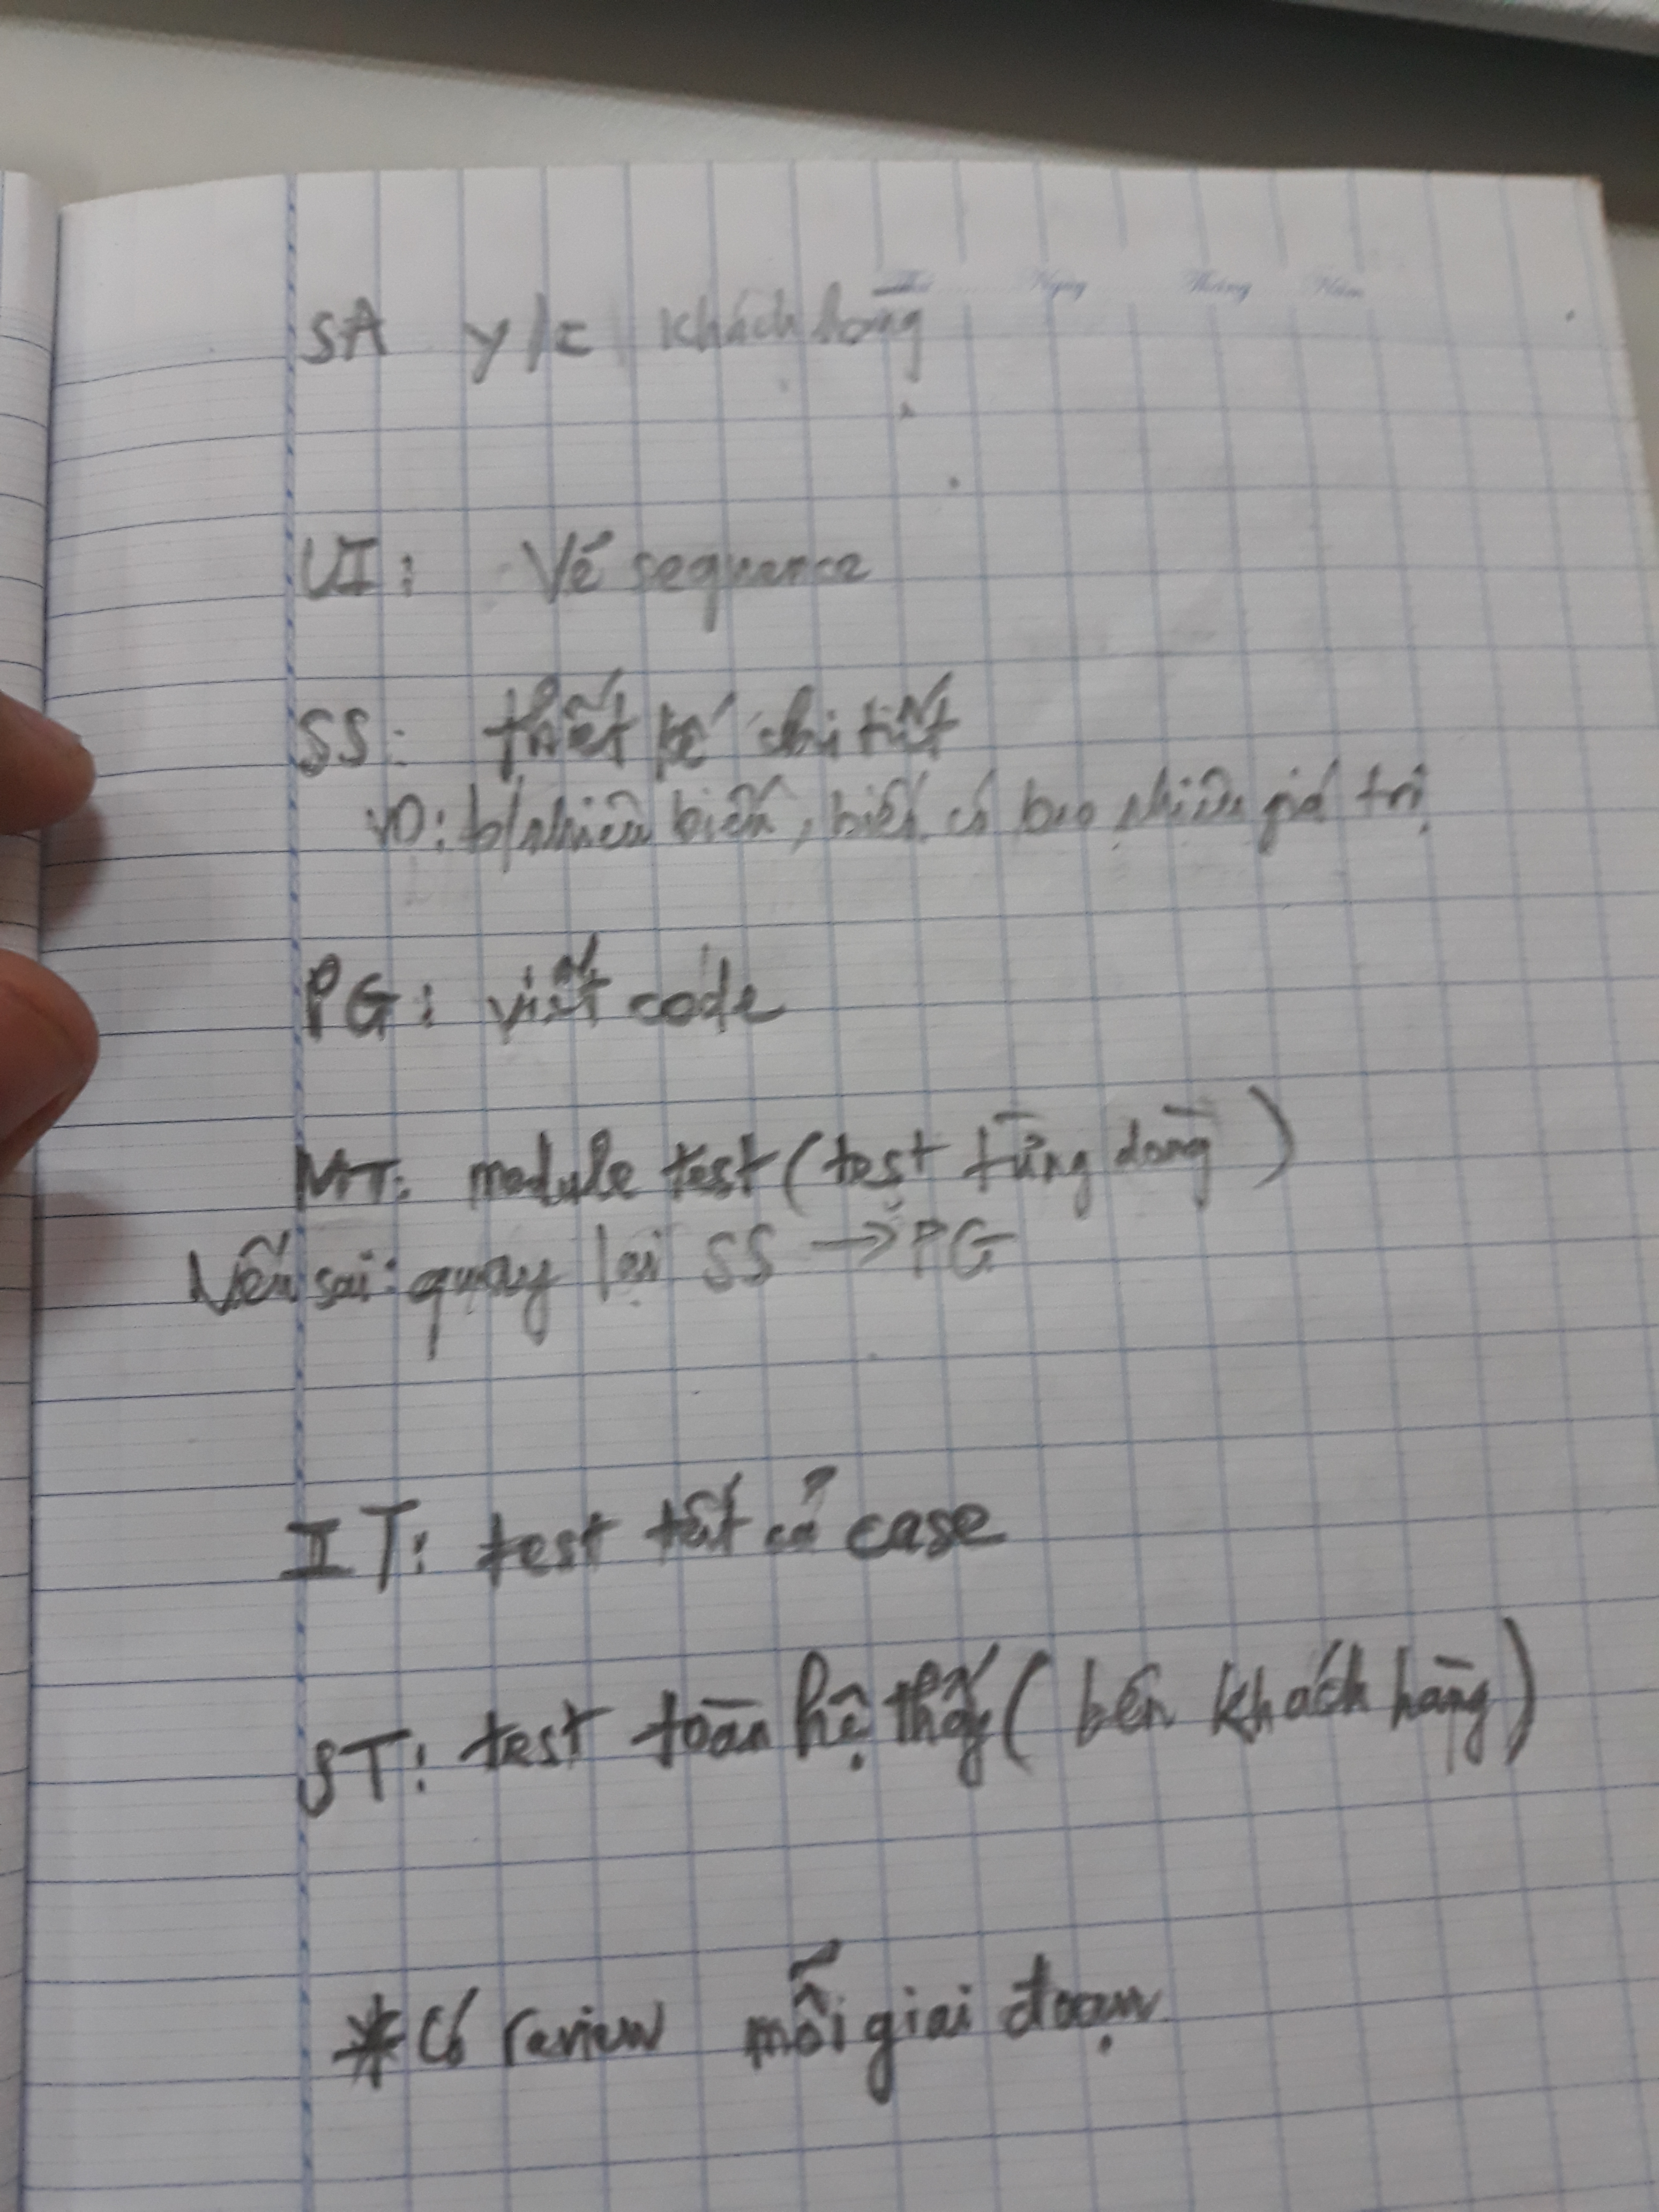 Thứ Ngày Tháng Năm
SA y/c khách hàng
UI: Vẽ sequence
SS: thiết kế chi tiết
VD: b/nhiêu biến, biến có bao nhiêu giá trị
PG: viết code
MT: module test (test từng dòng)
Nếu sai: quay lại SS → PG
IT: test tất cả case
ST: test toàn hệ thống (bên khách hàng)
* Có review mỗi giai đoạn